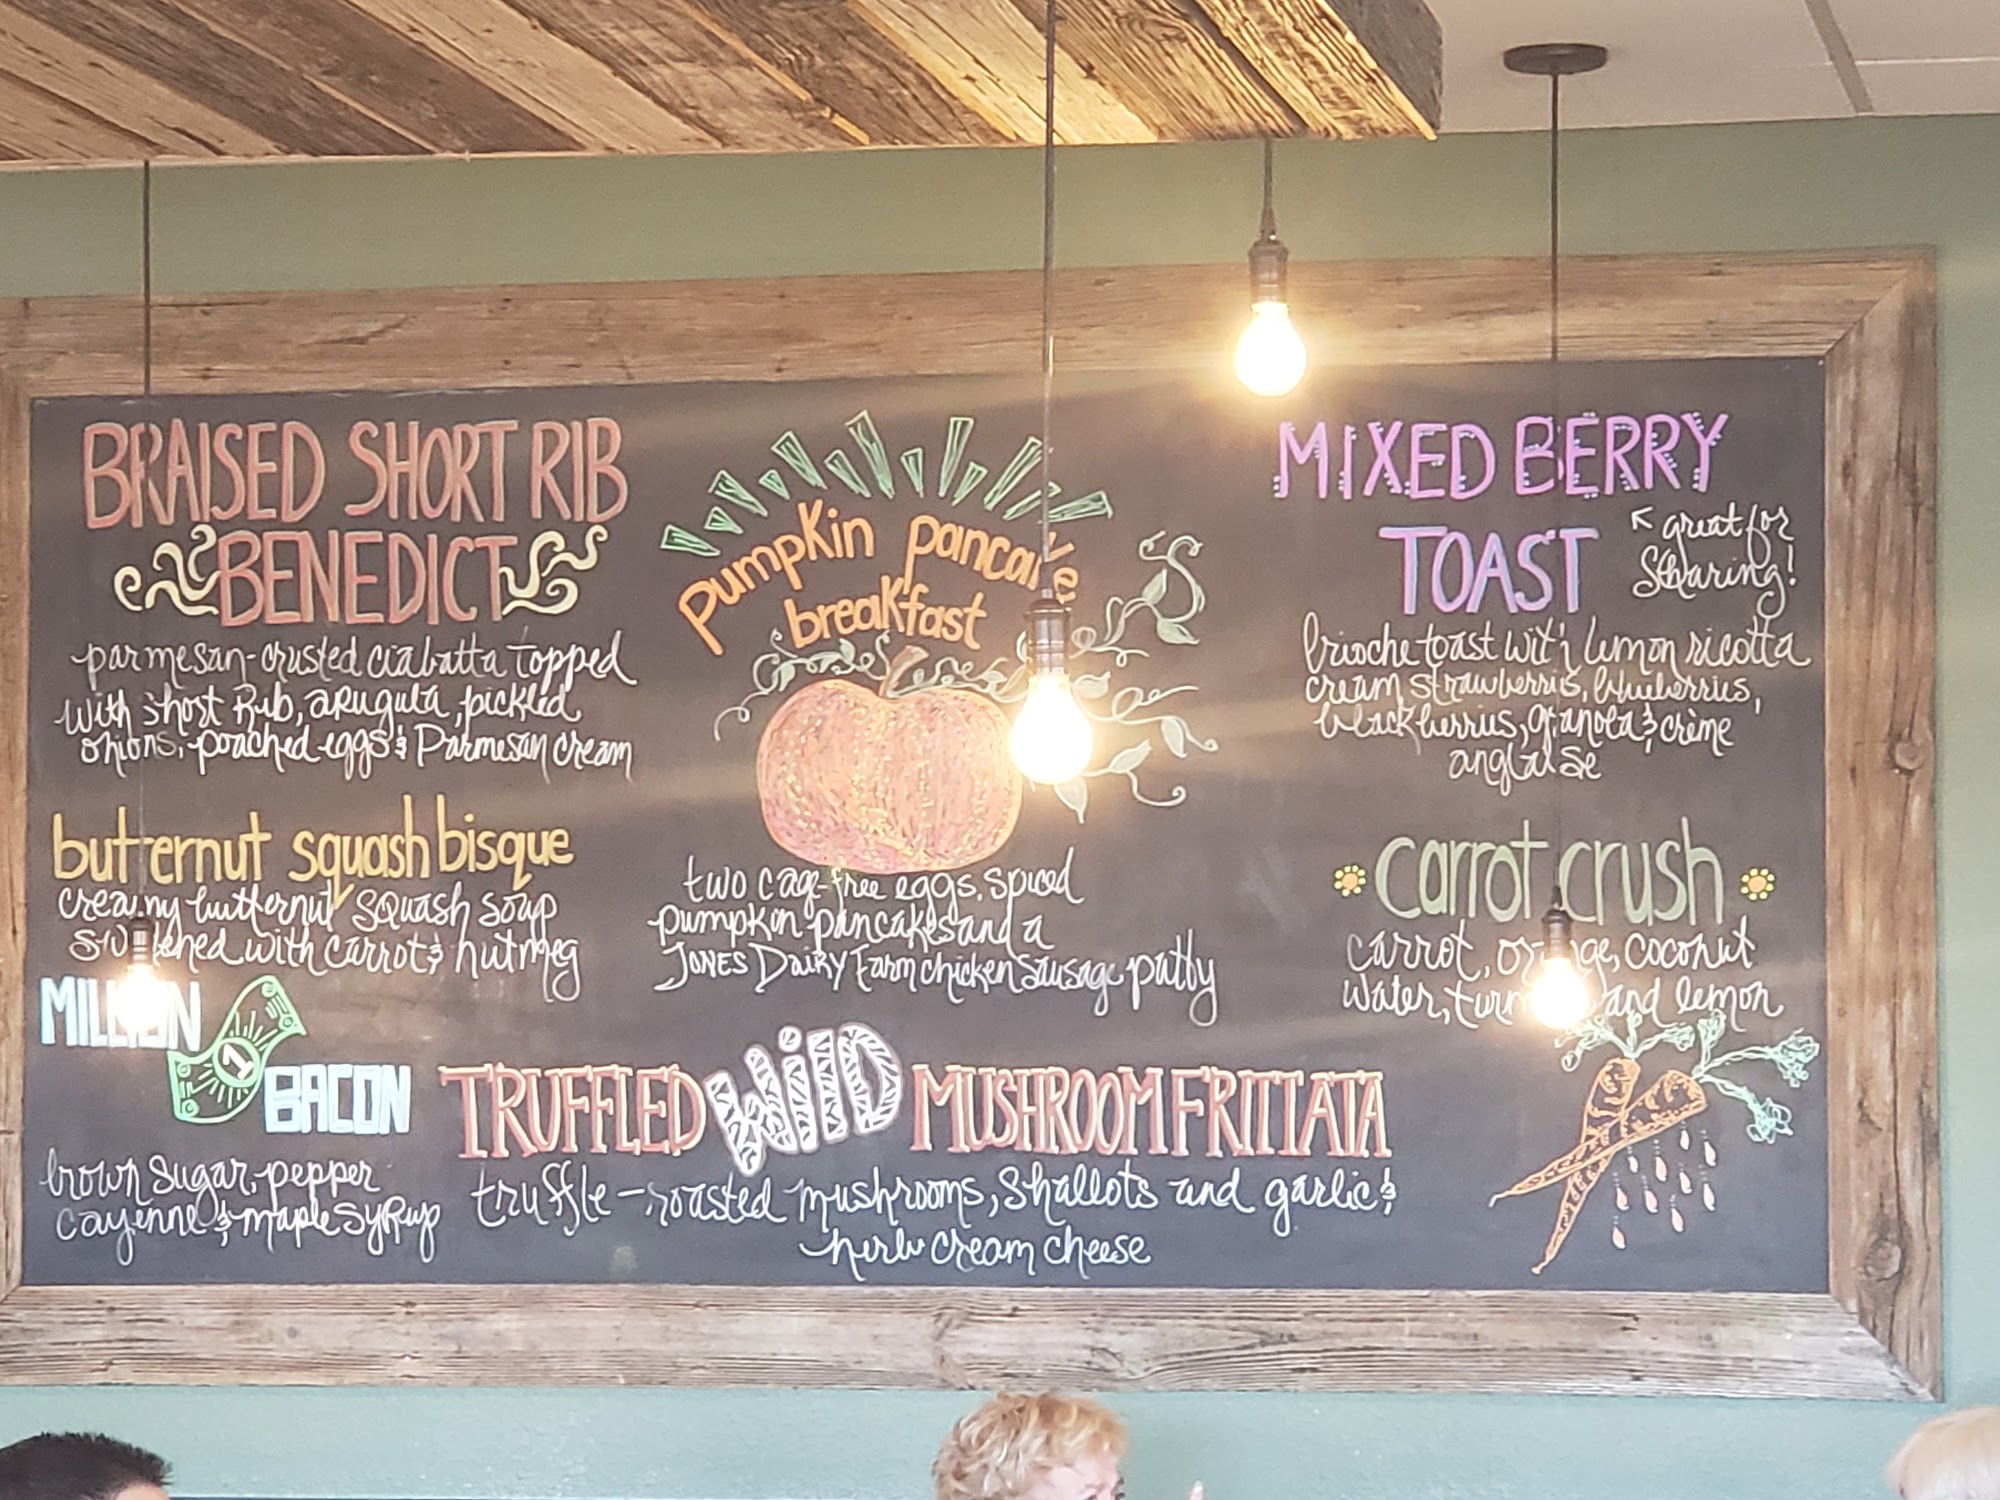 BRAISED SHORT RIB
BENEDICT
parmesan-crusted ciabatta topped
with short Rib, arugula, pickled
onions, poached eggs & Parmesan cream
butternut squash bisque
creamy butternut squash soup
sweetened with carrot & nutmeg
MILLION
1
BACON
brown sugar, pepper
cayenne & maple syRup
pumpkin pancake
breakfast
two cage-free eggs, spiced
pumpkin pancakes and a
JONES DAIRY Farm chicken sausage patty
TRUFFLED WilD MUSHROOM FRITTATA
truffle-roasted mushrooms, shallots and garlic &
herb cream cheese
MIXED BERRY
TOAST
great for
Sharing!
brioche toast with lemon ricotta
cream strawberries, blueberries,
blackberries, granola & crème
anglaise
carrot crush
carrot, orange, coconut
water, turmeric and lemon